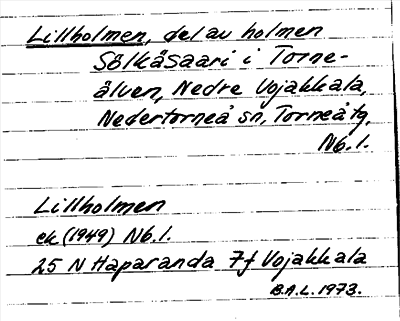 Lillholmen, del av holmen
Sölkäsaari i Torne-
älven, Nedre Vojakkala,
Nedertorneå sn, Torneå tg,
Nb. l.
Lillholmen
ek (1949) Nb. l.
25 N Haparanda 7f Vojakkala
B.A.L. 1973.